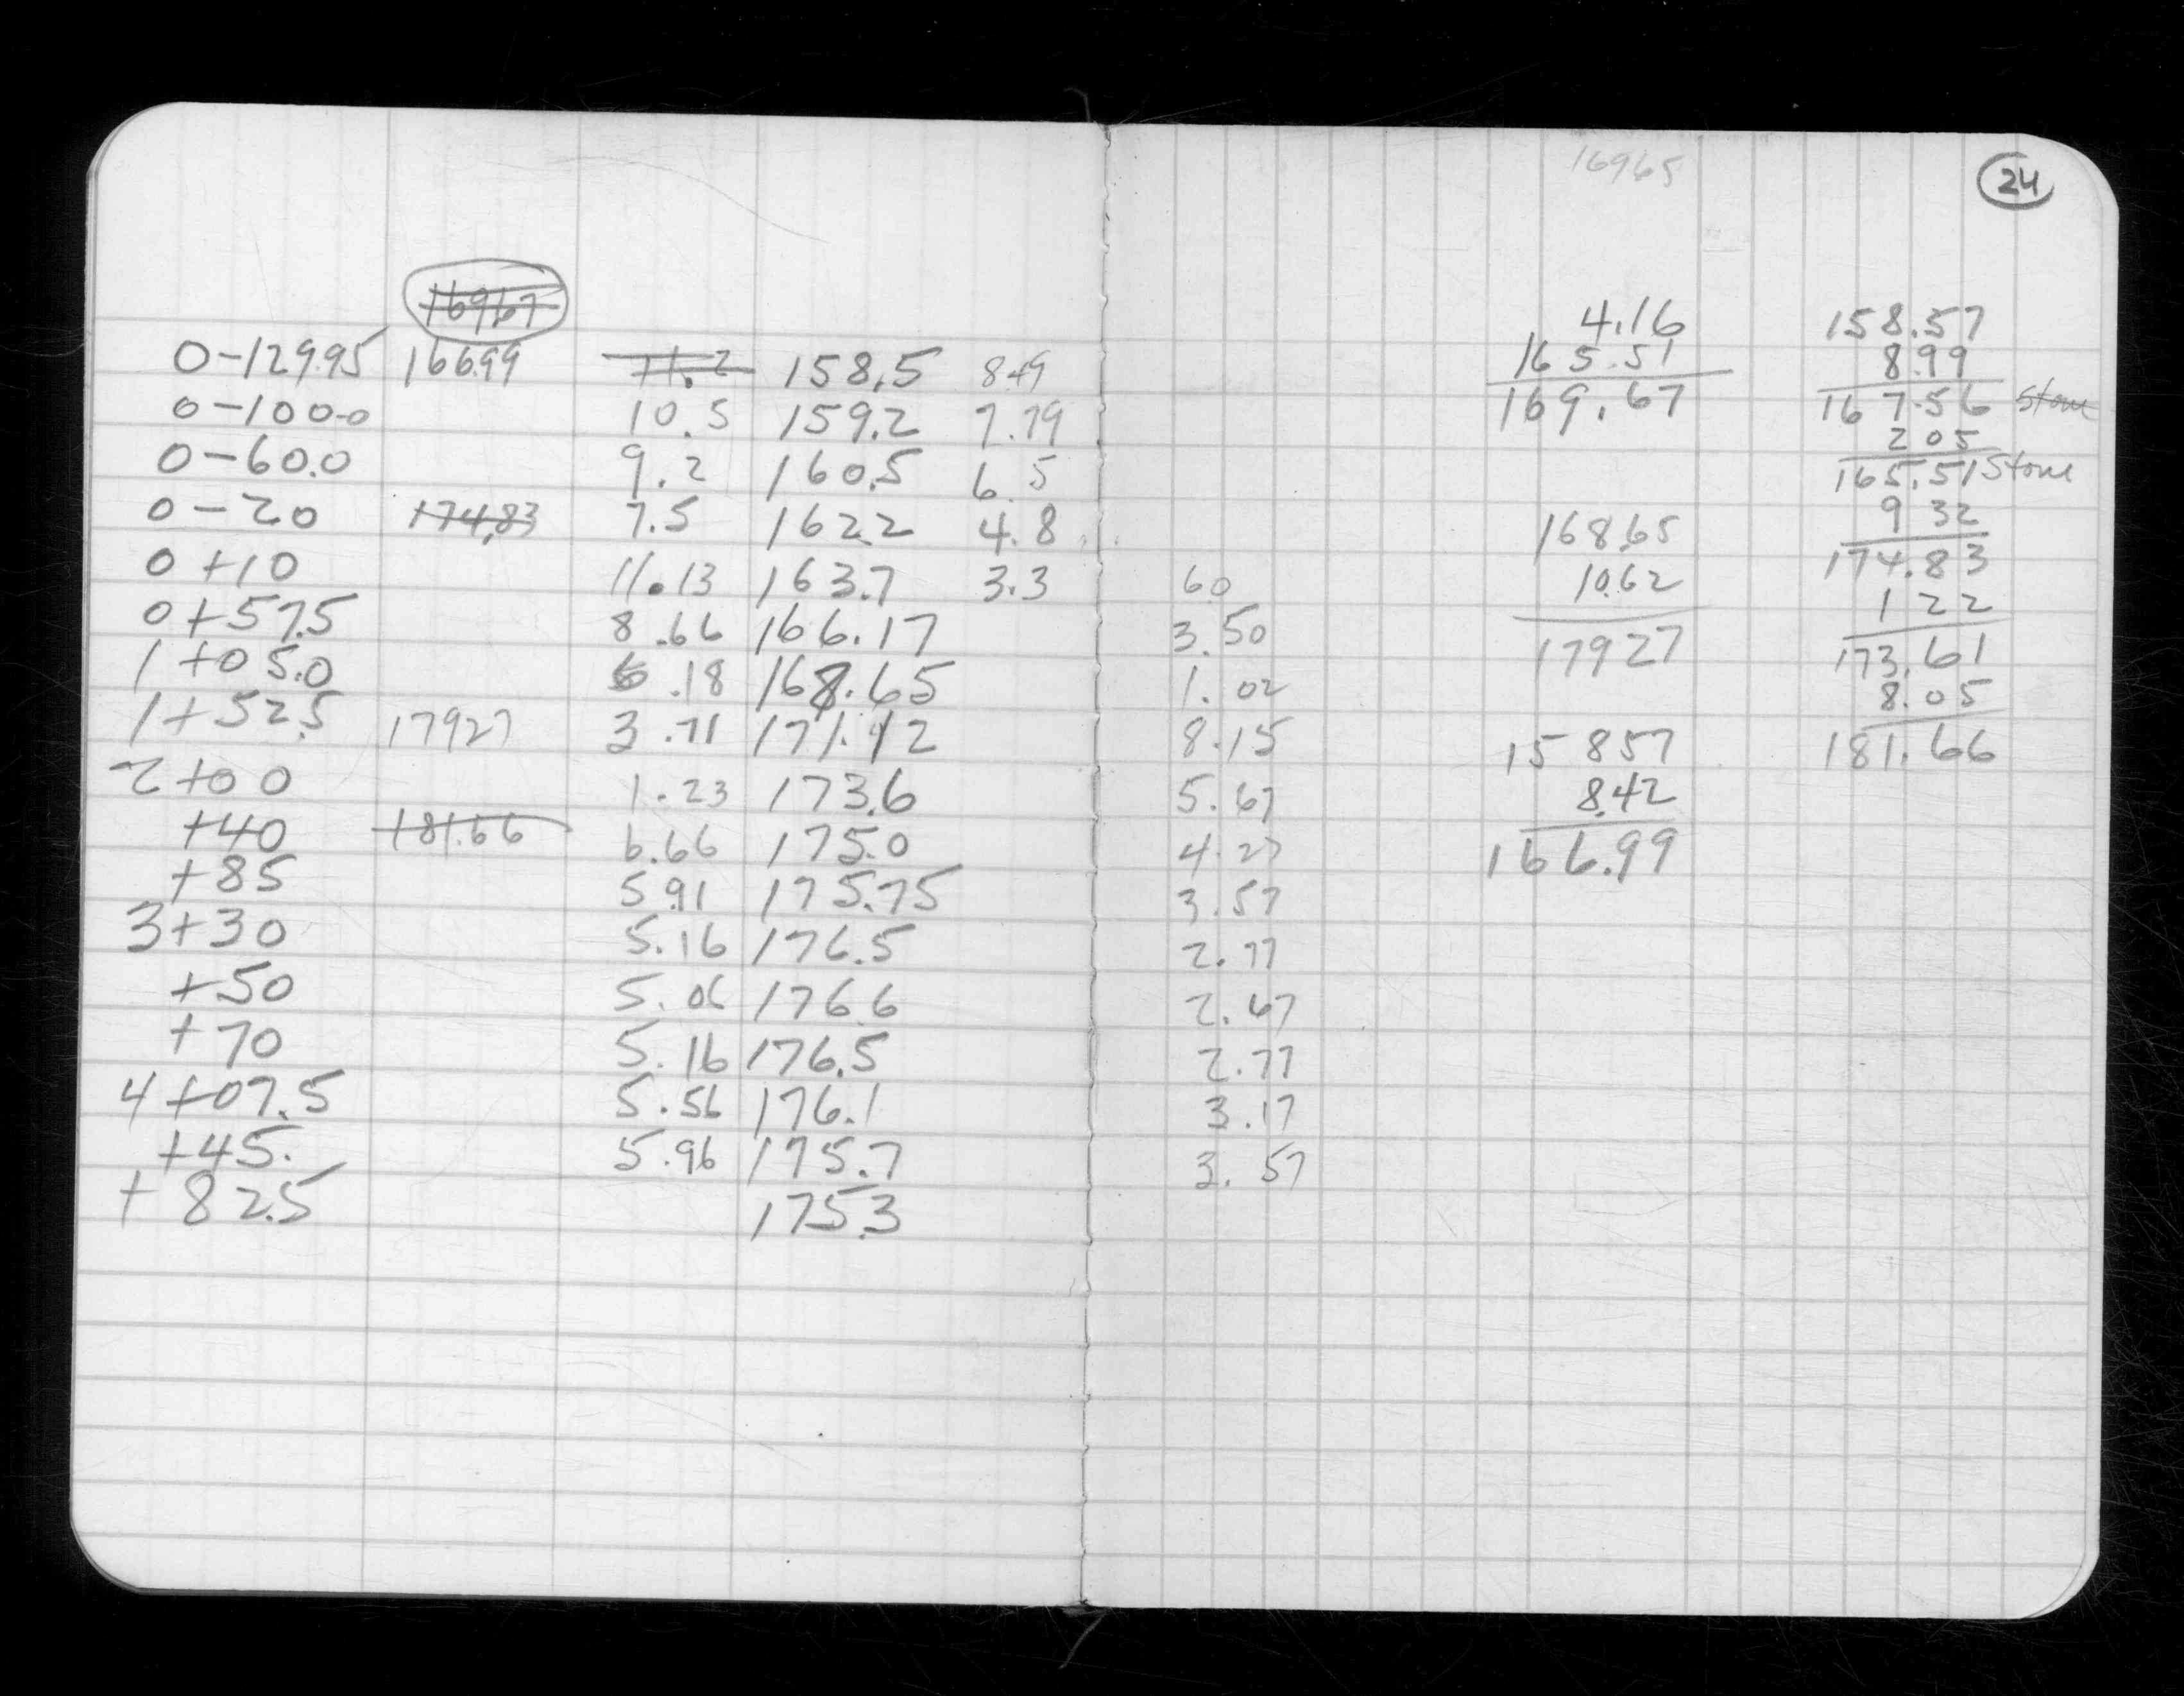 16965
24
16967
0-129.95 166.99 11.2 158.5 8.49
0-100.0 10.5 159.2 7.79
0-60.0 9.2 160.5 6.5
0-20 174.83 7.5 162.2 4.8
0+10 11.13 163.7 3.3 60
0+57.5 8.66 166.17 3.50
1+05.0 6.18 168.65 1.02
1+52.5 17927 3.71 171.12 8.15
2+00 1.23 173.6 5.67
+40 181.66 6.66 175.0 4.27
+85 5.91 175.75 3.57
3+30 5.16 176.5 2.77
+50 5.06 176.6 2.67
+70 5.16 176.5 2.77
4+07.5 5.56 176.1 3.17
+45. 5.96 175.7 3.57
+82.5 175.3
4.16
165.51
169.67
168.65
10.62
17927
15857
8.42
166.99
158.57
8.99
167.56 Stone
2 05
165.51 Stone
9 32
174.83
1 22
173.61
8.05
181.66